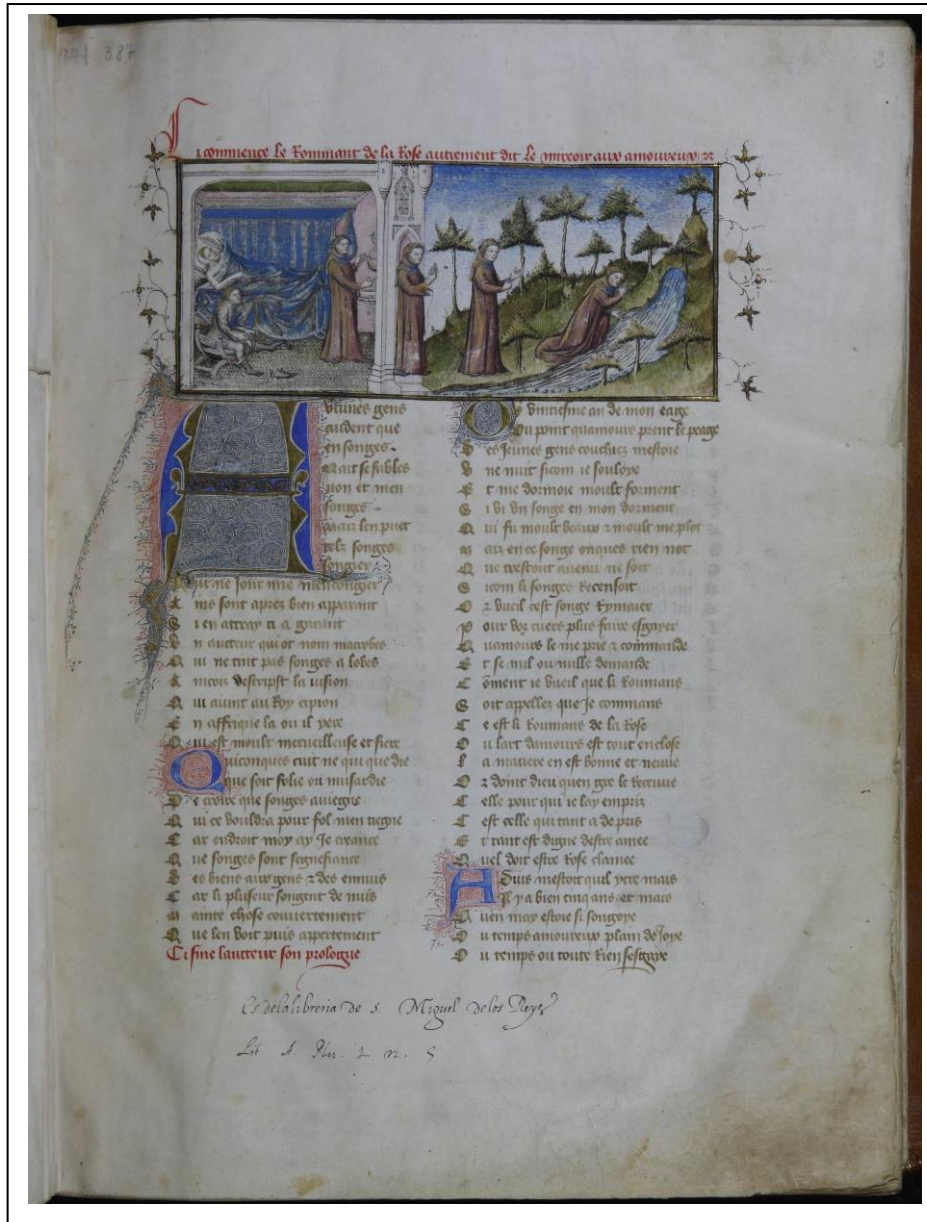 887
Ci commence le Rommant de la Rose autrement dit le miroir aux amoureux
Aulunes gens
cuident que
en songes
N ait se fables
non et men
songes
mais len puet
telz songes
songier
Qui ne sont mie mencongier
A ins sont apres bien apparant
S i en attray ti a garant
V n aucteur qui ot nom macrobes
Q ui ne tint pas songes a lobes
A incois descripst la vision
Q ui avint au Roy cipion
E n affrique la ou il yere
Q ui est moult merueilleuse et fiere
Quiconques cuit ne qui que die
Que soit folie ou musardie
D e croire que songes auiegne
Q ui ce vouldra pour fol men tiegne
C ar endroit moy ay Je creance
Q ue songes sont segnefiance
D es biens aux gens z des ennuis
C ar li pluseur songent de nuis
M ainte chose couuertement
Q ue len voit puis appertement
Ci fine laucteur son prologue
Ou vintiesme an de mon eage
Ou point quamours prent le peage
D es Jeunes gens couchiez mestoie
V ne nuit sicom ie souloye
E t me dormoie moult forment
S i vi vn songe en mon dorment
Q ui fu moult beaux z moult me plot
M ais en ce songe onques rien not
Q ue trestout auenu ne soit
S icom li songes Recensoit
O z vueil cest songe Rymaier
P our voz cuers plus faire esgayer
Q uamours le me prie z commande
E t se nul ou nulle demande
C õment ie vueil que li Roumans
S oit appellez que Je commans
C e est li Roumans de la Rose
O u lart damours est tout enclose
L a matiere en est bonne et neuue
O z doint dieu quen gre le Recueue
C elle pour qui ie lay empris
C est celle qui tant a de pris
E t tant est digne destre amee
Q uel doit estre Rose clamee
Aduis mestoit quil yere mais
Il y a bien cinq ans et mais
Q uen may estoie si songoye
O u temps amoureux plain de Joye
O u temps ou toute Rien sesgaye
Es de la libreria de S. Miguel de los Reyes
Lit. A. Plu. 1 n. 5